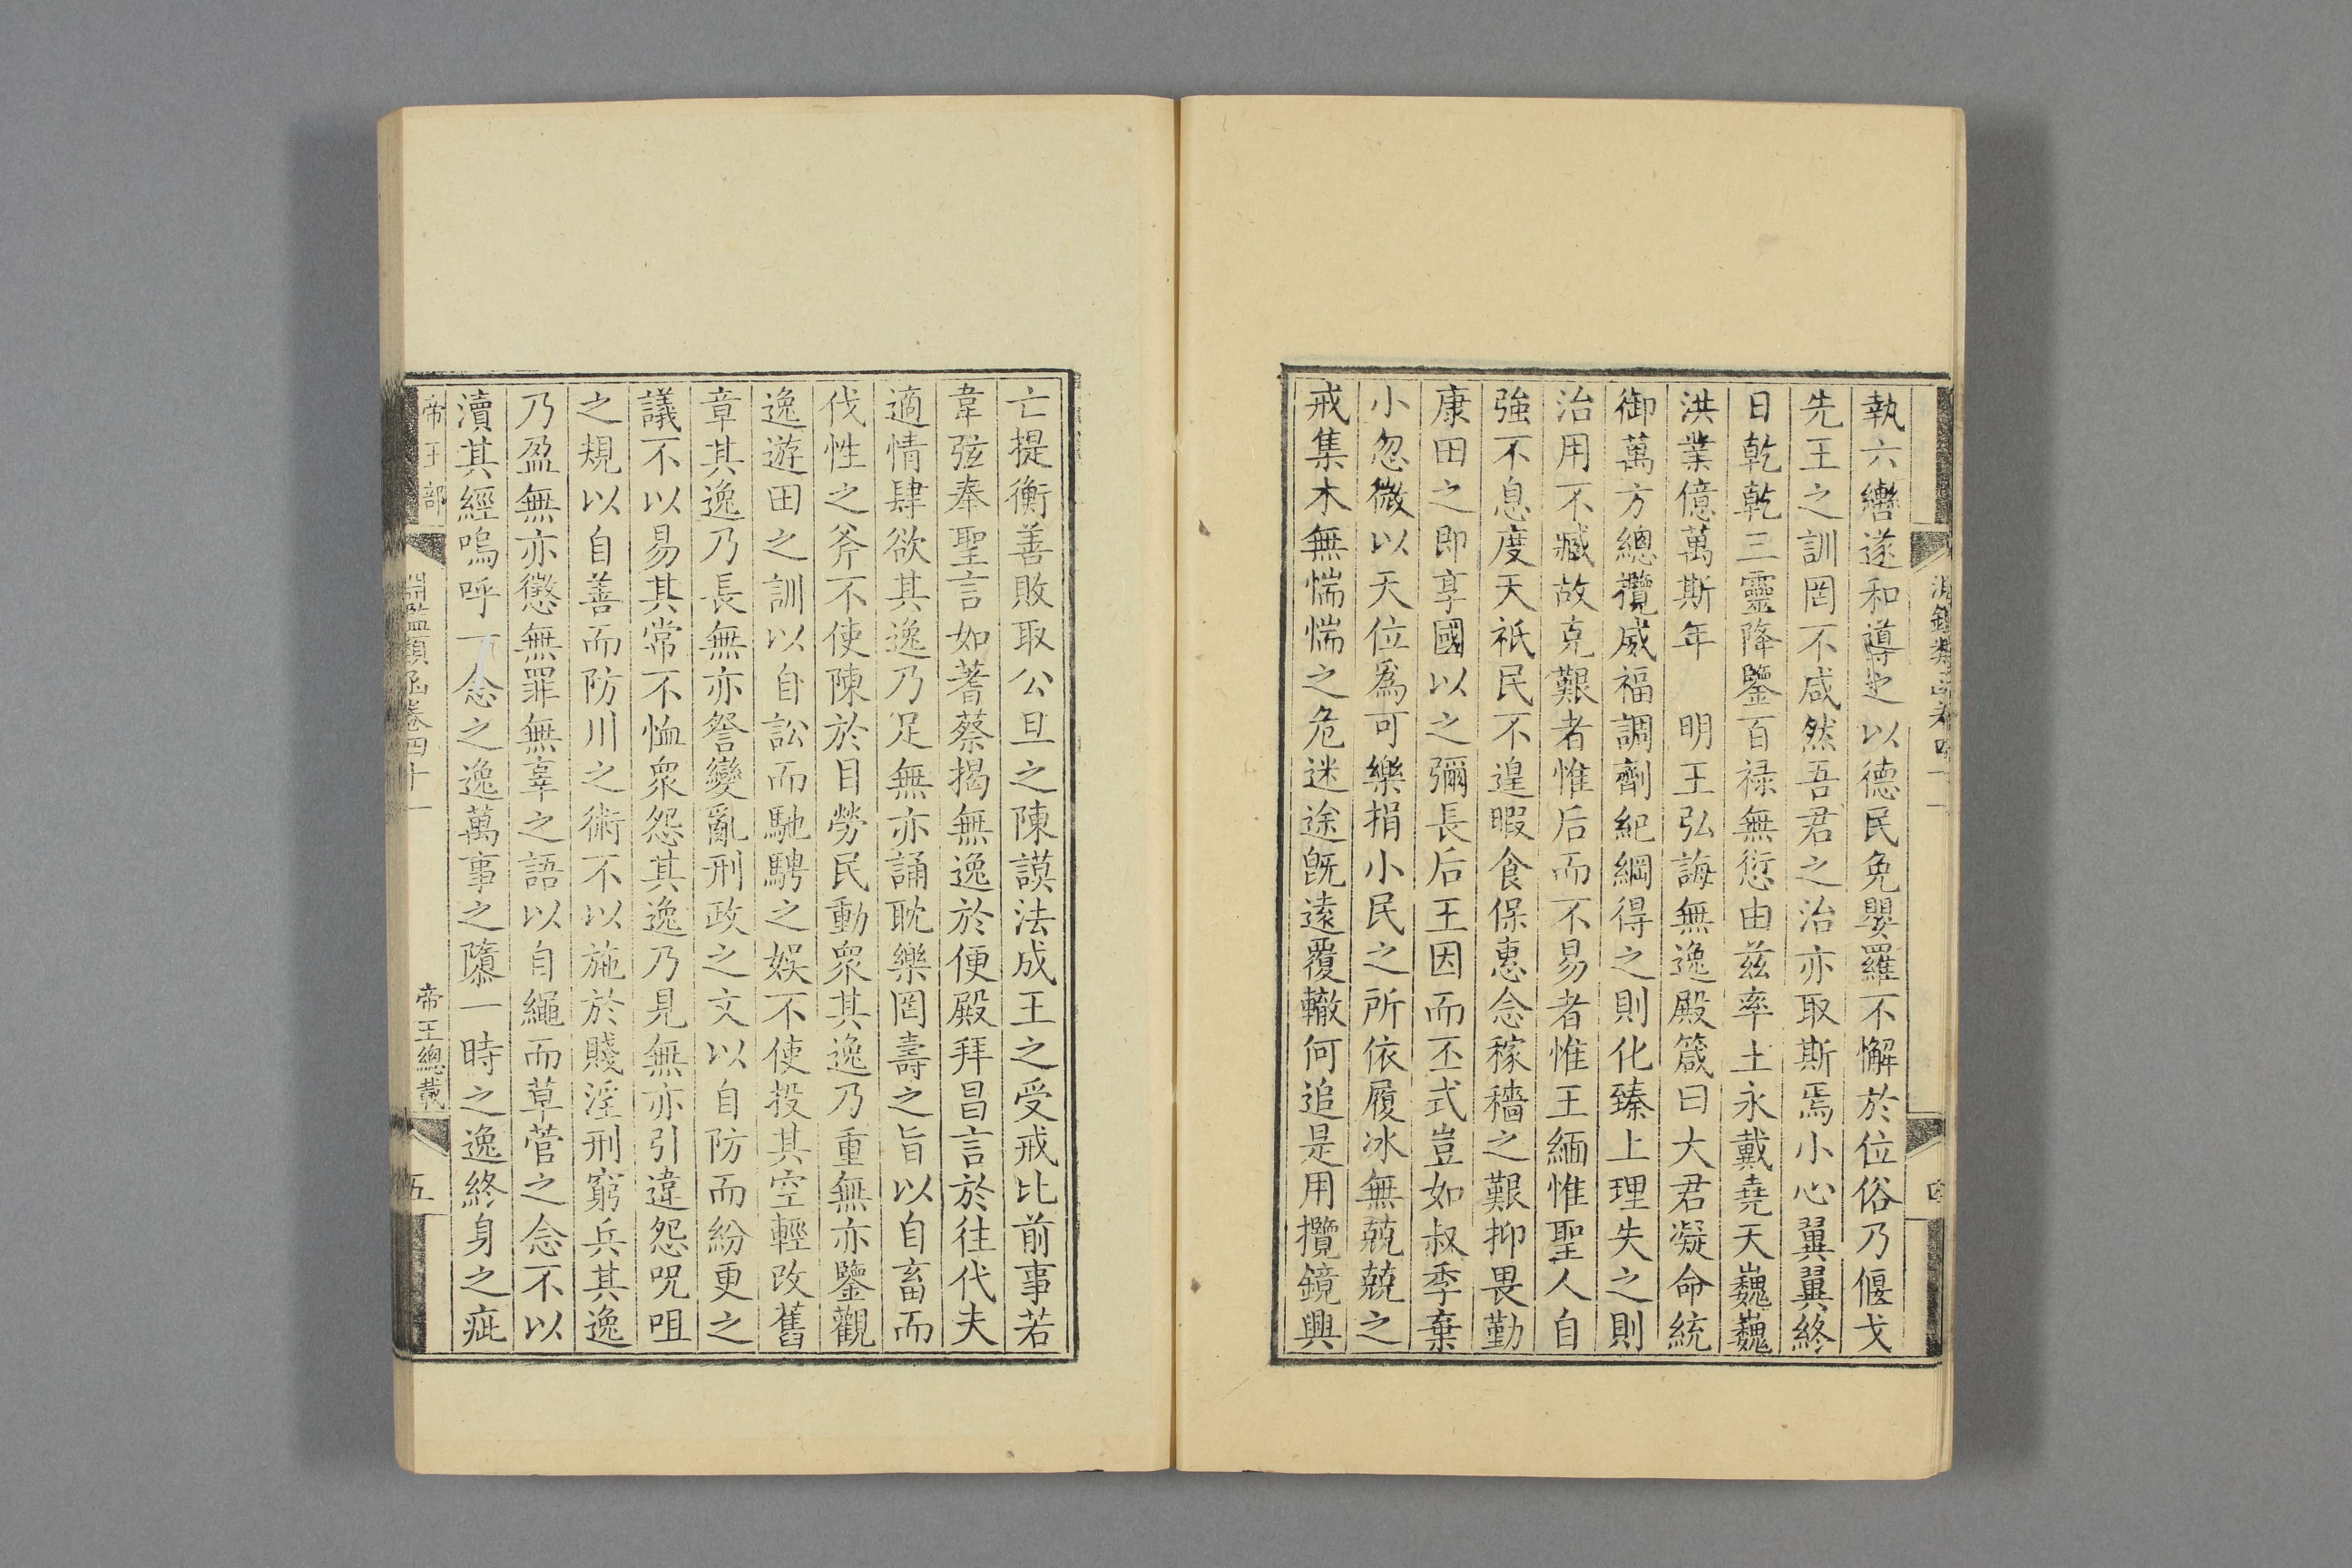 執六轡遂和導之以德民免嬰羅不懈於位俗乃偃戈
先王之訓罔不咸然吾君之治亦取斯焉小心翼翼終
日乾乾三靈降鑒百禄無愆由兹率土永戴堯天巍巍
洪業億萬斯年　明王弘誨無逸殿箴曰大君凝命統
御萬方總攬威福調劑紀綱得之則化臻上理失之則
治用不臧故克艱者惟后而不易者惟王緬惟聖人自
強不息度天祇民不遑暇食保惠念稼穡之艱抑畏勤
康田之即享國以之彌長后王因而丕式豈如叔季棄
小忽微以天位爲可樂捐小民之所依履冰無兢兢之
戒集木無惴惴之危迷途旣逺覆轍何追是用攬鏡興
亡提衡善敗取公旦之陳謨法成王之受戒比前事若
韋弦奉聖言如蓍蔡揭無逸於便殿拜昌言於往代夫
適情肆欲其逸乃足無亦誦耽樂罔壽之旨以自畜而
伐性之斧不使陳於目勞民動衆其逸乃重無亦鑒觀
逸遊田之訓以自訟而馳騁之娛不使投其空輕改舊
章其逸乃長無亦詧變亂刑政之文以自防而紛更之
議不以易其常不恤衆怨其逸乃見無亦引違怨呪咀
之規以自善而防川之術不以施於賤淫刑窮兵其逸
乃盈無亦懲無罪無辜之語以自繩而草菅之念不以
瀆其經嗚呼一念之逸萬事之隳一時之逸終身之疵
帝王部
淵鑑類函卷四十一
帝王總載
五